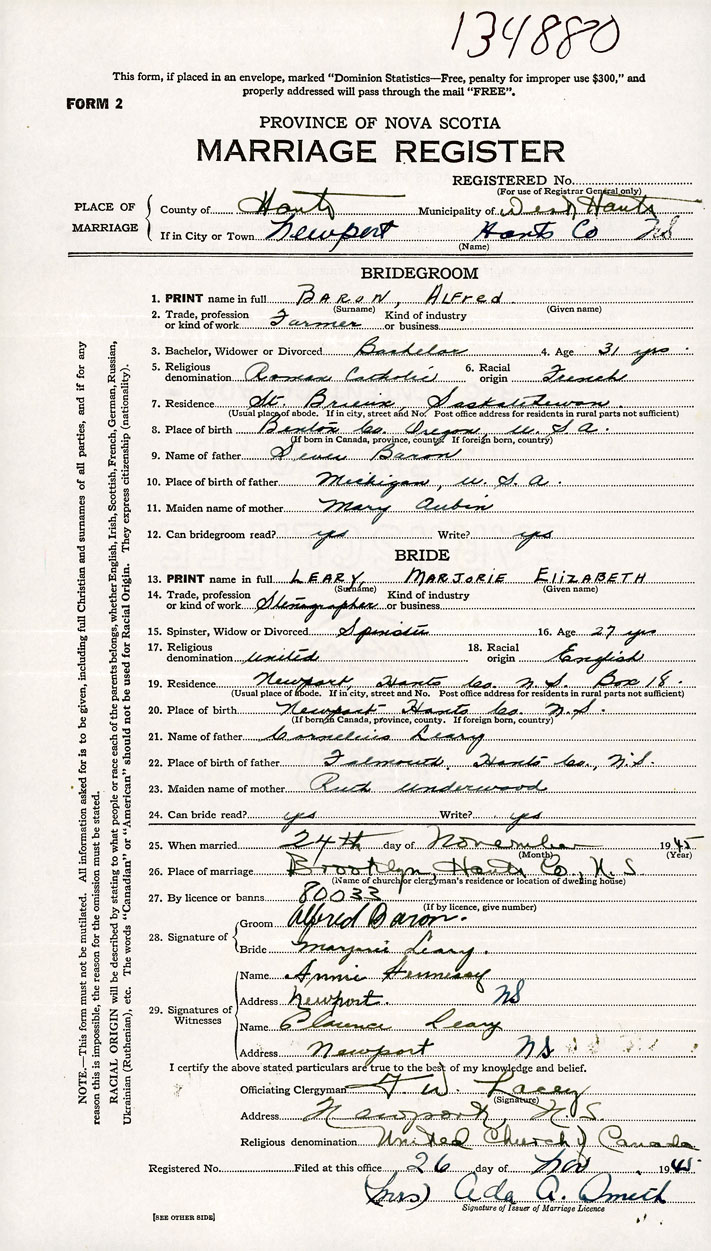 134880
This form, if placed in an envelope, marked "Dominion Statistics—Free, penalty for improper use $300," and
properly addressed will pass through the mail "FREE".
FORM 2
PROVINCE OF NOVA SCOTIA
MARRIAGE REGISTER
REGISTERED No.
(For use of Registrar General only)
PLACE OF MARRIAGE
County of Hants Municipality of West Hants
If in City or Town Newport Hants Co NS
(Name)
BRIDEGROOM
1. PRINT name in full BARON, ALFRED
(Surname) (Given name)
2. Trade, profession or kind of work Farmer Kind of industry or business
3. Bachelor, Widower or Divorced Bachelor 4. Age 31 yrs.
5. Religious denomination Roman Catholic 6. Racial origin French
7. Residence St. Brieux Saskatchewan
(Usual place of abode. If in city, street and No. Post office address for residents in rural parts not sufficient)
8. Place of birth Benton Co. Oregon, U.S.A.
(If born in Canada, province, county. If foreign born, country)
9. Name of father Baron
10. Place of birth of father Michigan, U.S.A.
11. Maiden name of mother Mary Aubin
12. Can bridegroom read? yes Write? yes
BRIDE
13. PRINT name in full LEARY, MARJORIE ELIZABETH
(Surname) (Given name)
14. Trade, profession or kind of work Stenographer Kind of industry or business
15. Spinster, Widow or Divorced Spinster 16. Age 27 yrs
17. Religious denomination United 18. Racial origin English
19. Residence Newport Hants Co. N.S. Box 18.
(Usual place of abode. If in city, street and No. Post office address for residents in rural parts not sufficient)
20. Place of birth Newport Hants Co. N.S.
(If born in Canada, province, county. If foreign born, country)
21. Name of father Cornelius Leary
22. Place of birth of father Falmouth, Hants Co., N.S.
23. Maiden name of mother Ruth Underwood
24. Can bride read? yes Write? yes
25. When married 24th day of November 1945
(Month) (Year)
26. Place of marriage Brooklyn, Hants Co., N.S.
(Name of church or clergyman's residence or location of dwelling house)
27. By licence or banns 80033
(If by licence, give number)
28. Signature of
Groom Alfred Baron.
Bride Marjorie Leary.
29. Signatures of Witnesses
Name Annie Hennessy
Address Newport. NS
Name Clarence Leary
Address Newport NS
I certify the above stated particulars are true to the best of my knowledge and belief.
Officiating Clergyman W. Lacey
(Signature)
Address Newport, N.S.
Religious denomination United Church of Canada
Registered No. Filed at this office 26 day of Nov. 1945
(Mrs) Ada A. Smith
Signature of Issuer of Marriage Licence
[SEE OTHER SIDE]
NOTE.—This form must not be mutilated. All information asked for is to be given, including full Christian and surnames of all parties, and if for any
reason this is impossible, the reason for the omission must be stated.
RACIAL ORIGIN will be described by stating to what people or race each of the parents belongs, whether English, Irish, Scottish, French, German, Russian,
Ukrainian (Ruthenian), etc. The words "Canadian" or "American" should not be used for Racial Origin. They express citizenship (nationality).